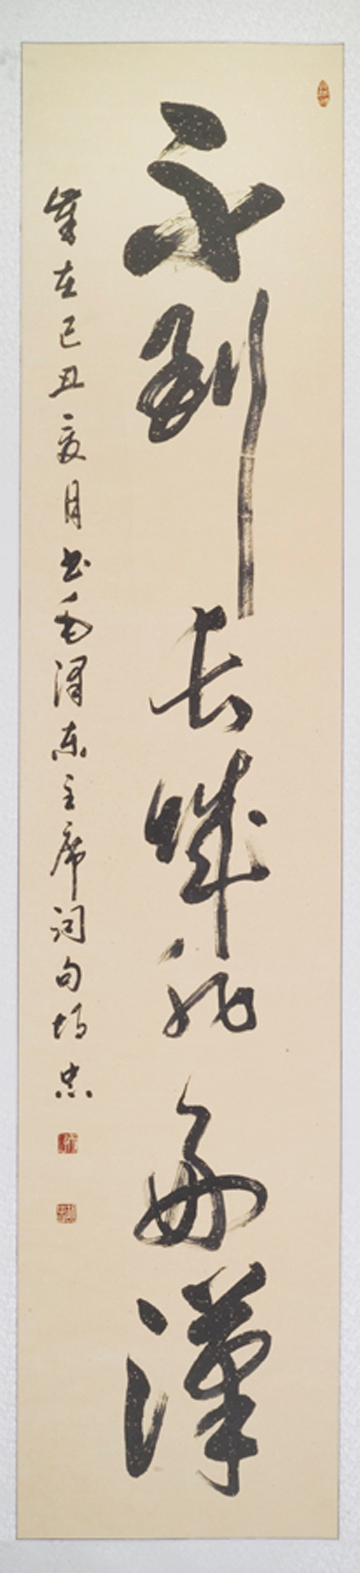 不到长城非好漢
歲在己丑夏月书毛泽东主席词句忠